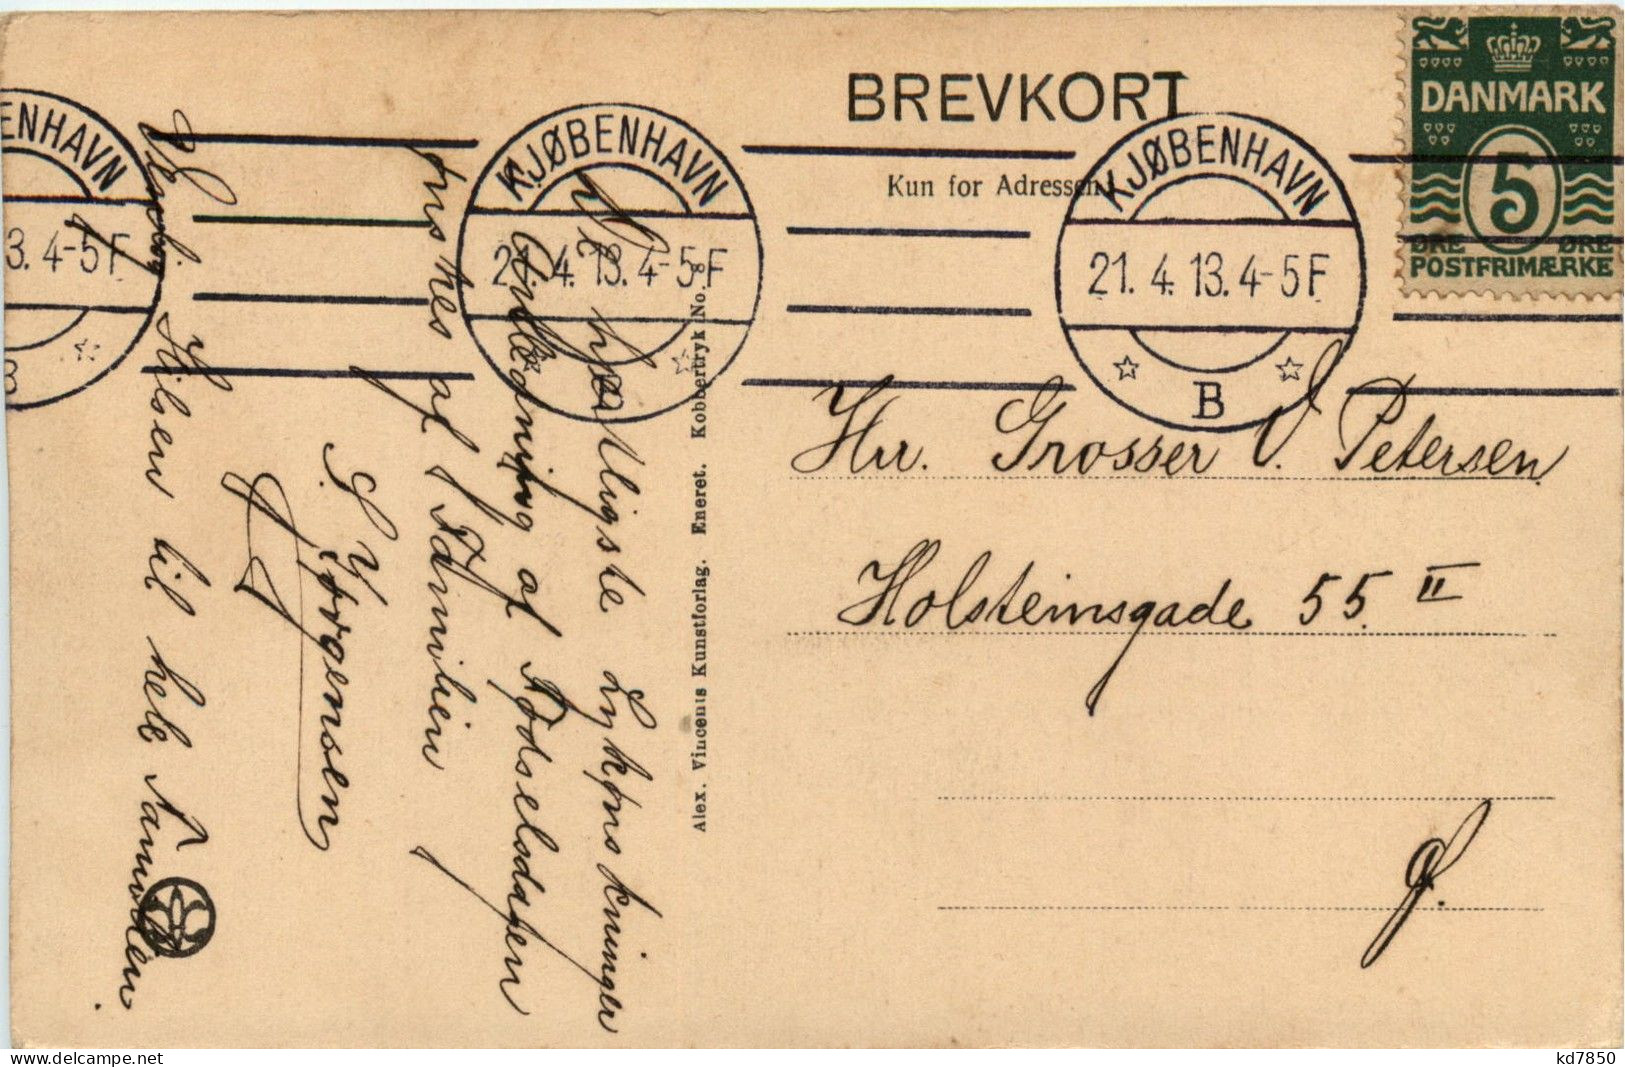 BREVKORT
Kun for Adressen
DANMARK
5
ØRE ØRE
POSTFRIMÆRKE
KJØBENHAVN
21. 4. 13. 4-5 F
B
KJØBENHAVN
21. 4. 13. 4-5 F
ENHAVN
3. 4-5 F
B
Hr. Grosser V. Petersen
Holsteinsgade 55 II
Ø.
De hjærteligste Lykønskninger
i Anledning af Fødselsdagen
ønskes af Familien
Jørgensen
Hilsen til hele Familien.
Alex. Vincents Kunstforlag. Eneret. Kobbertryk No. 8
kd7850